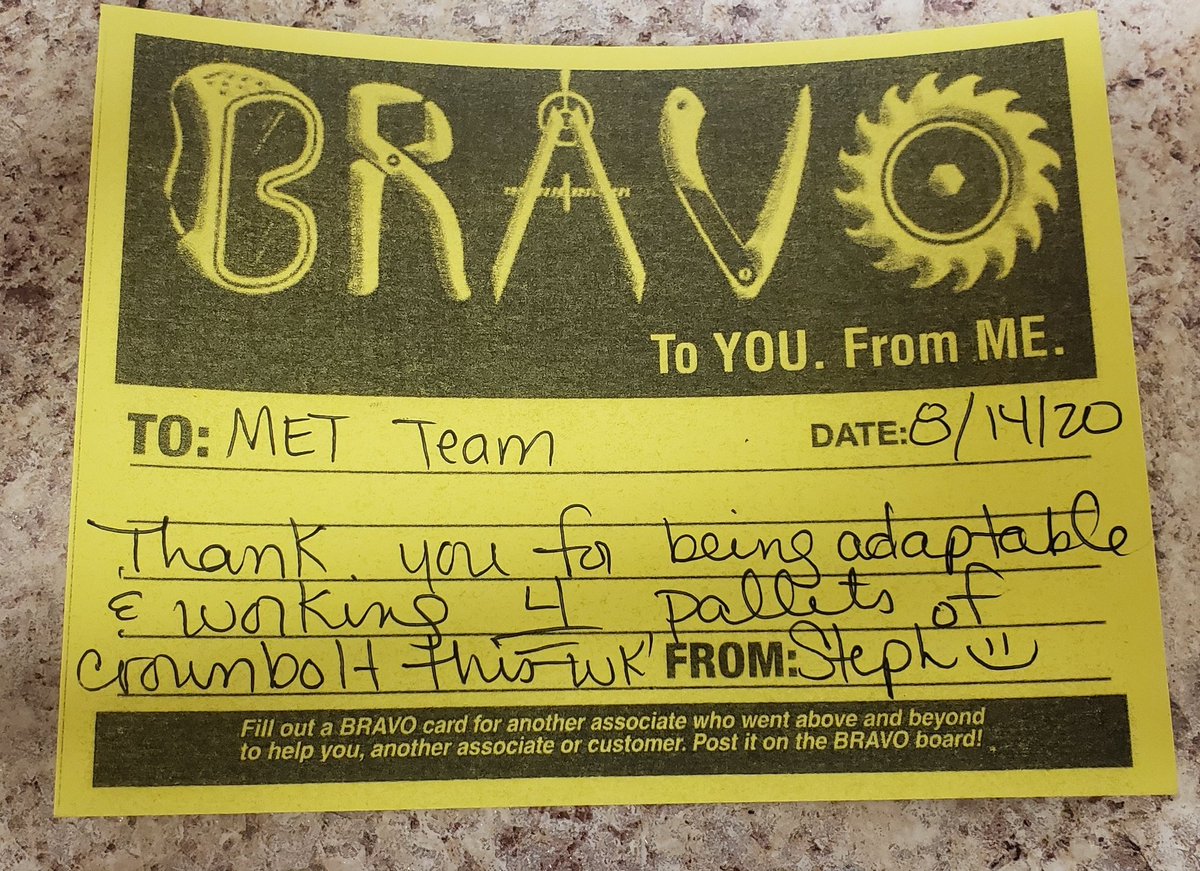 BRAVO
To YOU. From ME.
TO: MET Team DATE: 8/14/20
Thank you for being adaptable
& working 4 pallets of
crownbolt this wk' FROM: Steph
Fill out a BRAVO card for another associate who went above and beyond
to help you, another associate or customer. Post it on the BRAVO board!